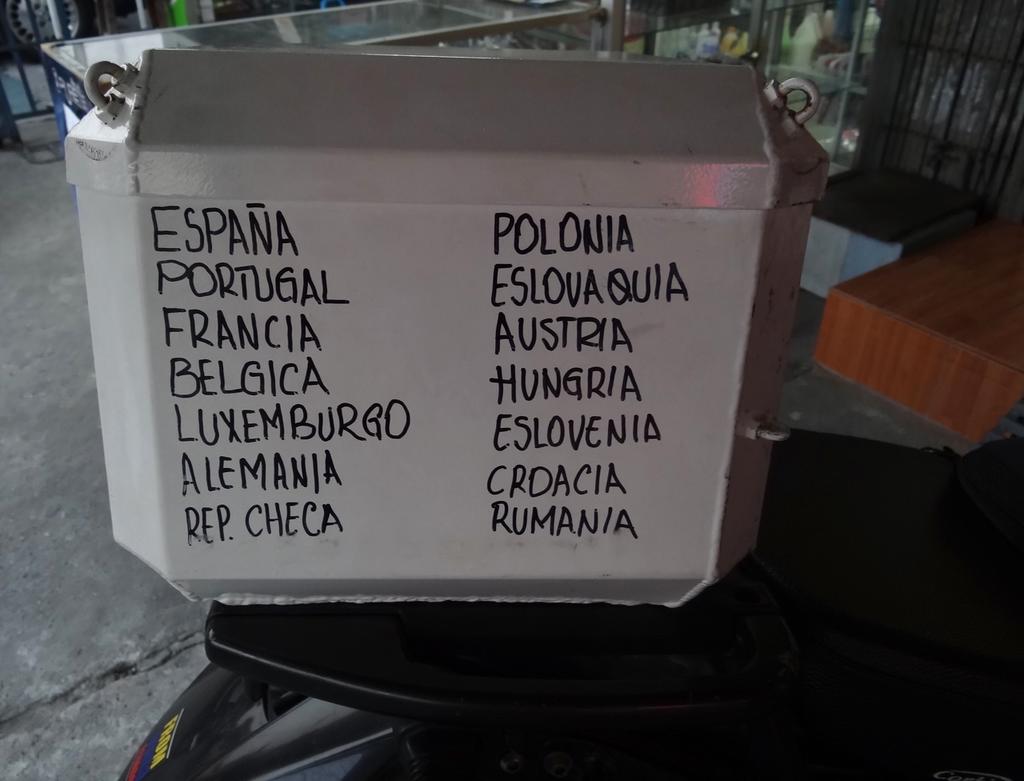 ESPAÑA
PORTUGAL
FRANCIA
BELGICA
LUXEMBURGO
ALEMANIA
REP. CHECA
POLONIA
ESLOVAQUIA
AUSTRIA
HUNGRIA
ESLOVENIA
CROACIA
RUMANIA